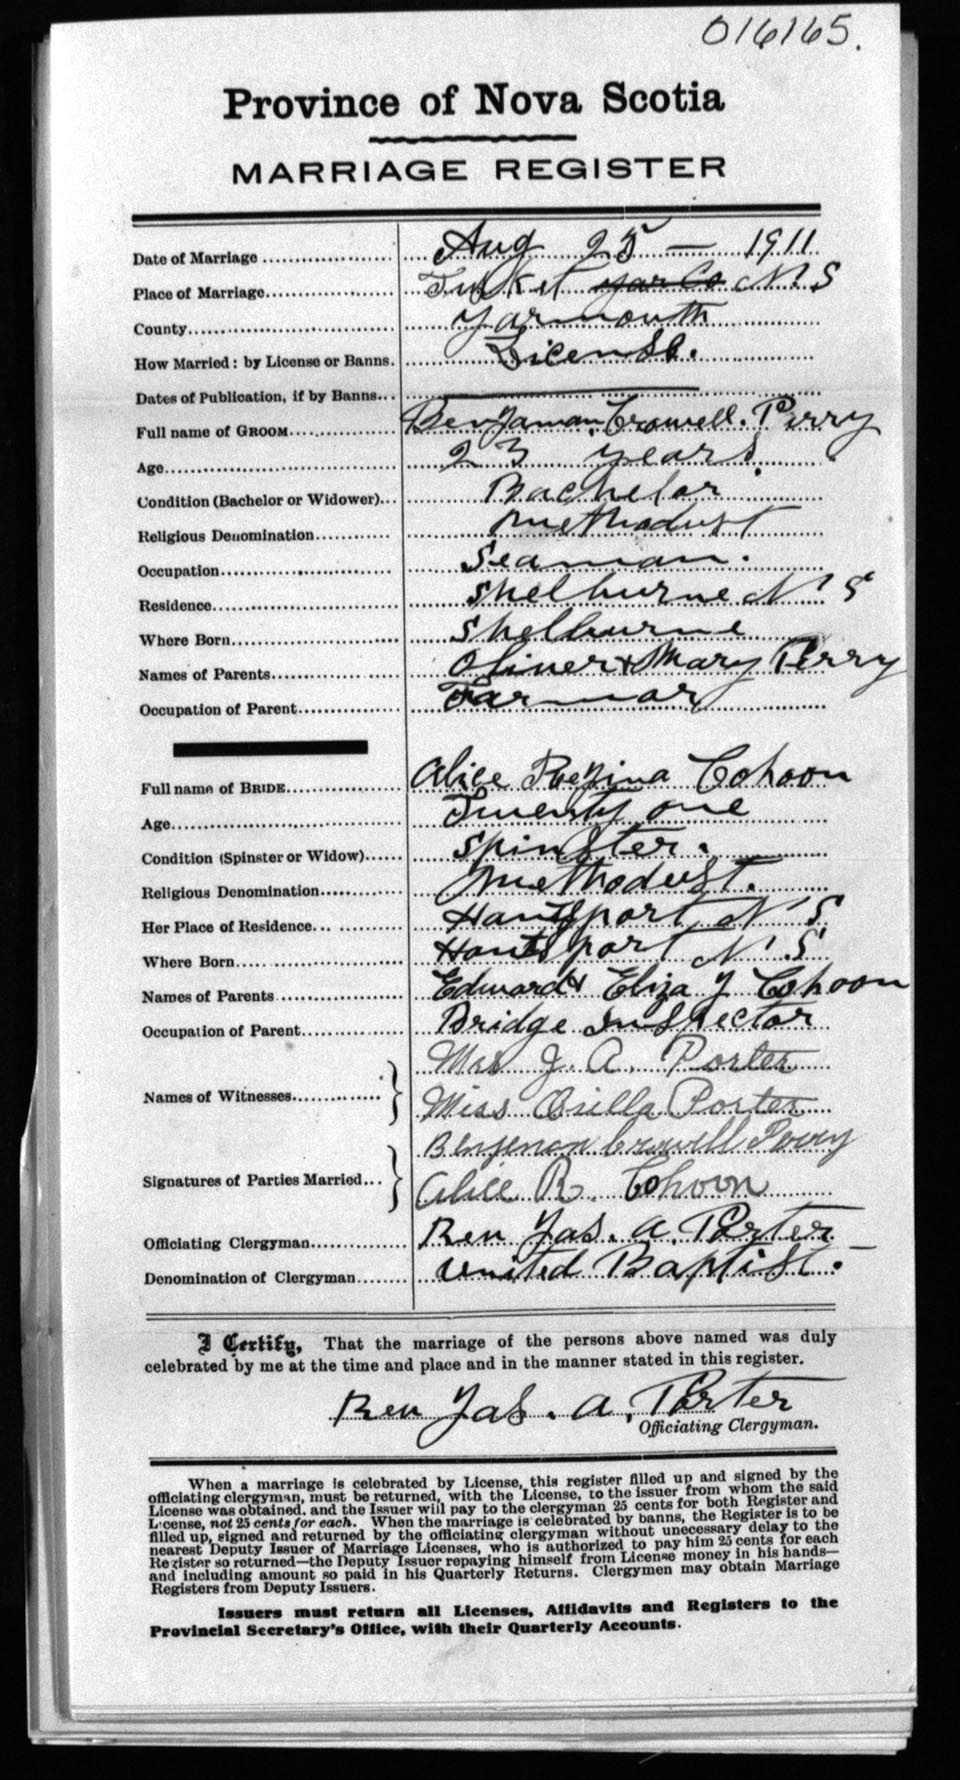 016165.
Province of Nova Scotia
MARRIAGE REGISTER
Date of Marriage Aug 25 — 1911
Place of Marriage Tusket Yar Co N.S
County Yarmouth
How Married: by License or Banns. License.
Dates of Publication, if by Banns
Full name of GROOM Benjaman Crowell. Perry
Age 23 years.
Condition (Bachelor or Widower) Bachelor
Religious Denomination Methodust
Occupation Seaman.
Residence Shelburne N S
Where Born Shelburne
Names of Parents Oliver + Mary Perry
Occupation of Parent Farmor
Full name of BRIDE Alice Rezina Cohoon
Age Twenty one
Condition (Spinster or Widow) Spinster.
Religious Denomination Methodust.
Her Place of Residence Hantsport N S
Where Born Hantsport N.S
Names of Parents Edward & Eliza J Cohoon
Occupation of Parent Bridge Inspector
Mrs J. A. Porter
Names of Witnesses
Miss Orilla Porter
Benjeman Crowell Perry
Signatures of Parties Married
Alice R. Cohoon
Officiating Clergyman Rev Jas. A. Porter
Denomination of Clergyman United Baptist.
I Certify, That the marriage of the persons above named was duly
celebrated by me at the time and place and in the manner stated in this register.
Rev Jas. A. Porter
Officiating Clergyman.
When a marriage is celebrated by License, this register filled up and signed by the
officiating clergyman, must be returned, with the License, to the issuer from whom the said
License was obtained. and the Issuer will pay to the clergyman 25 cents for both Register and
License, not 25 cents for each. When the marriage is celebrated by banns, the Register is to be
filled up, signed and returned by the officiating clergyman without unnecessary delay to the
nearest Deputy Issuer of Marriage Licenses, who is authorized to pay him 25 cents for each
Register so returned—the Deputy Issuer repaying himself from License money in his hands—
and including amount so paid in his Quarterly Returns. Clergymen may obtain Marriage
Registers from Deputy Issuers.
Issuers must return all Licenses, Affidavits and Registers to the
Provincial Secretary's Office, with their Quarterly Accounts.